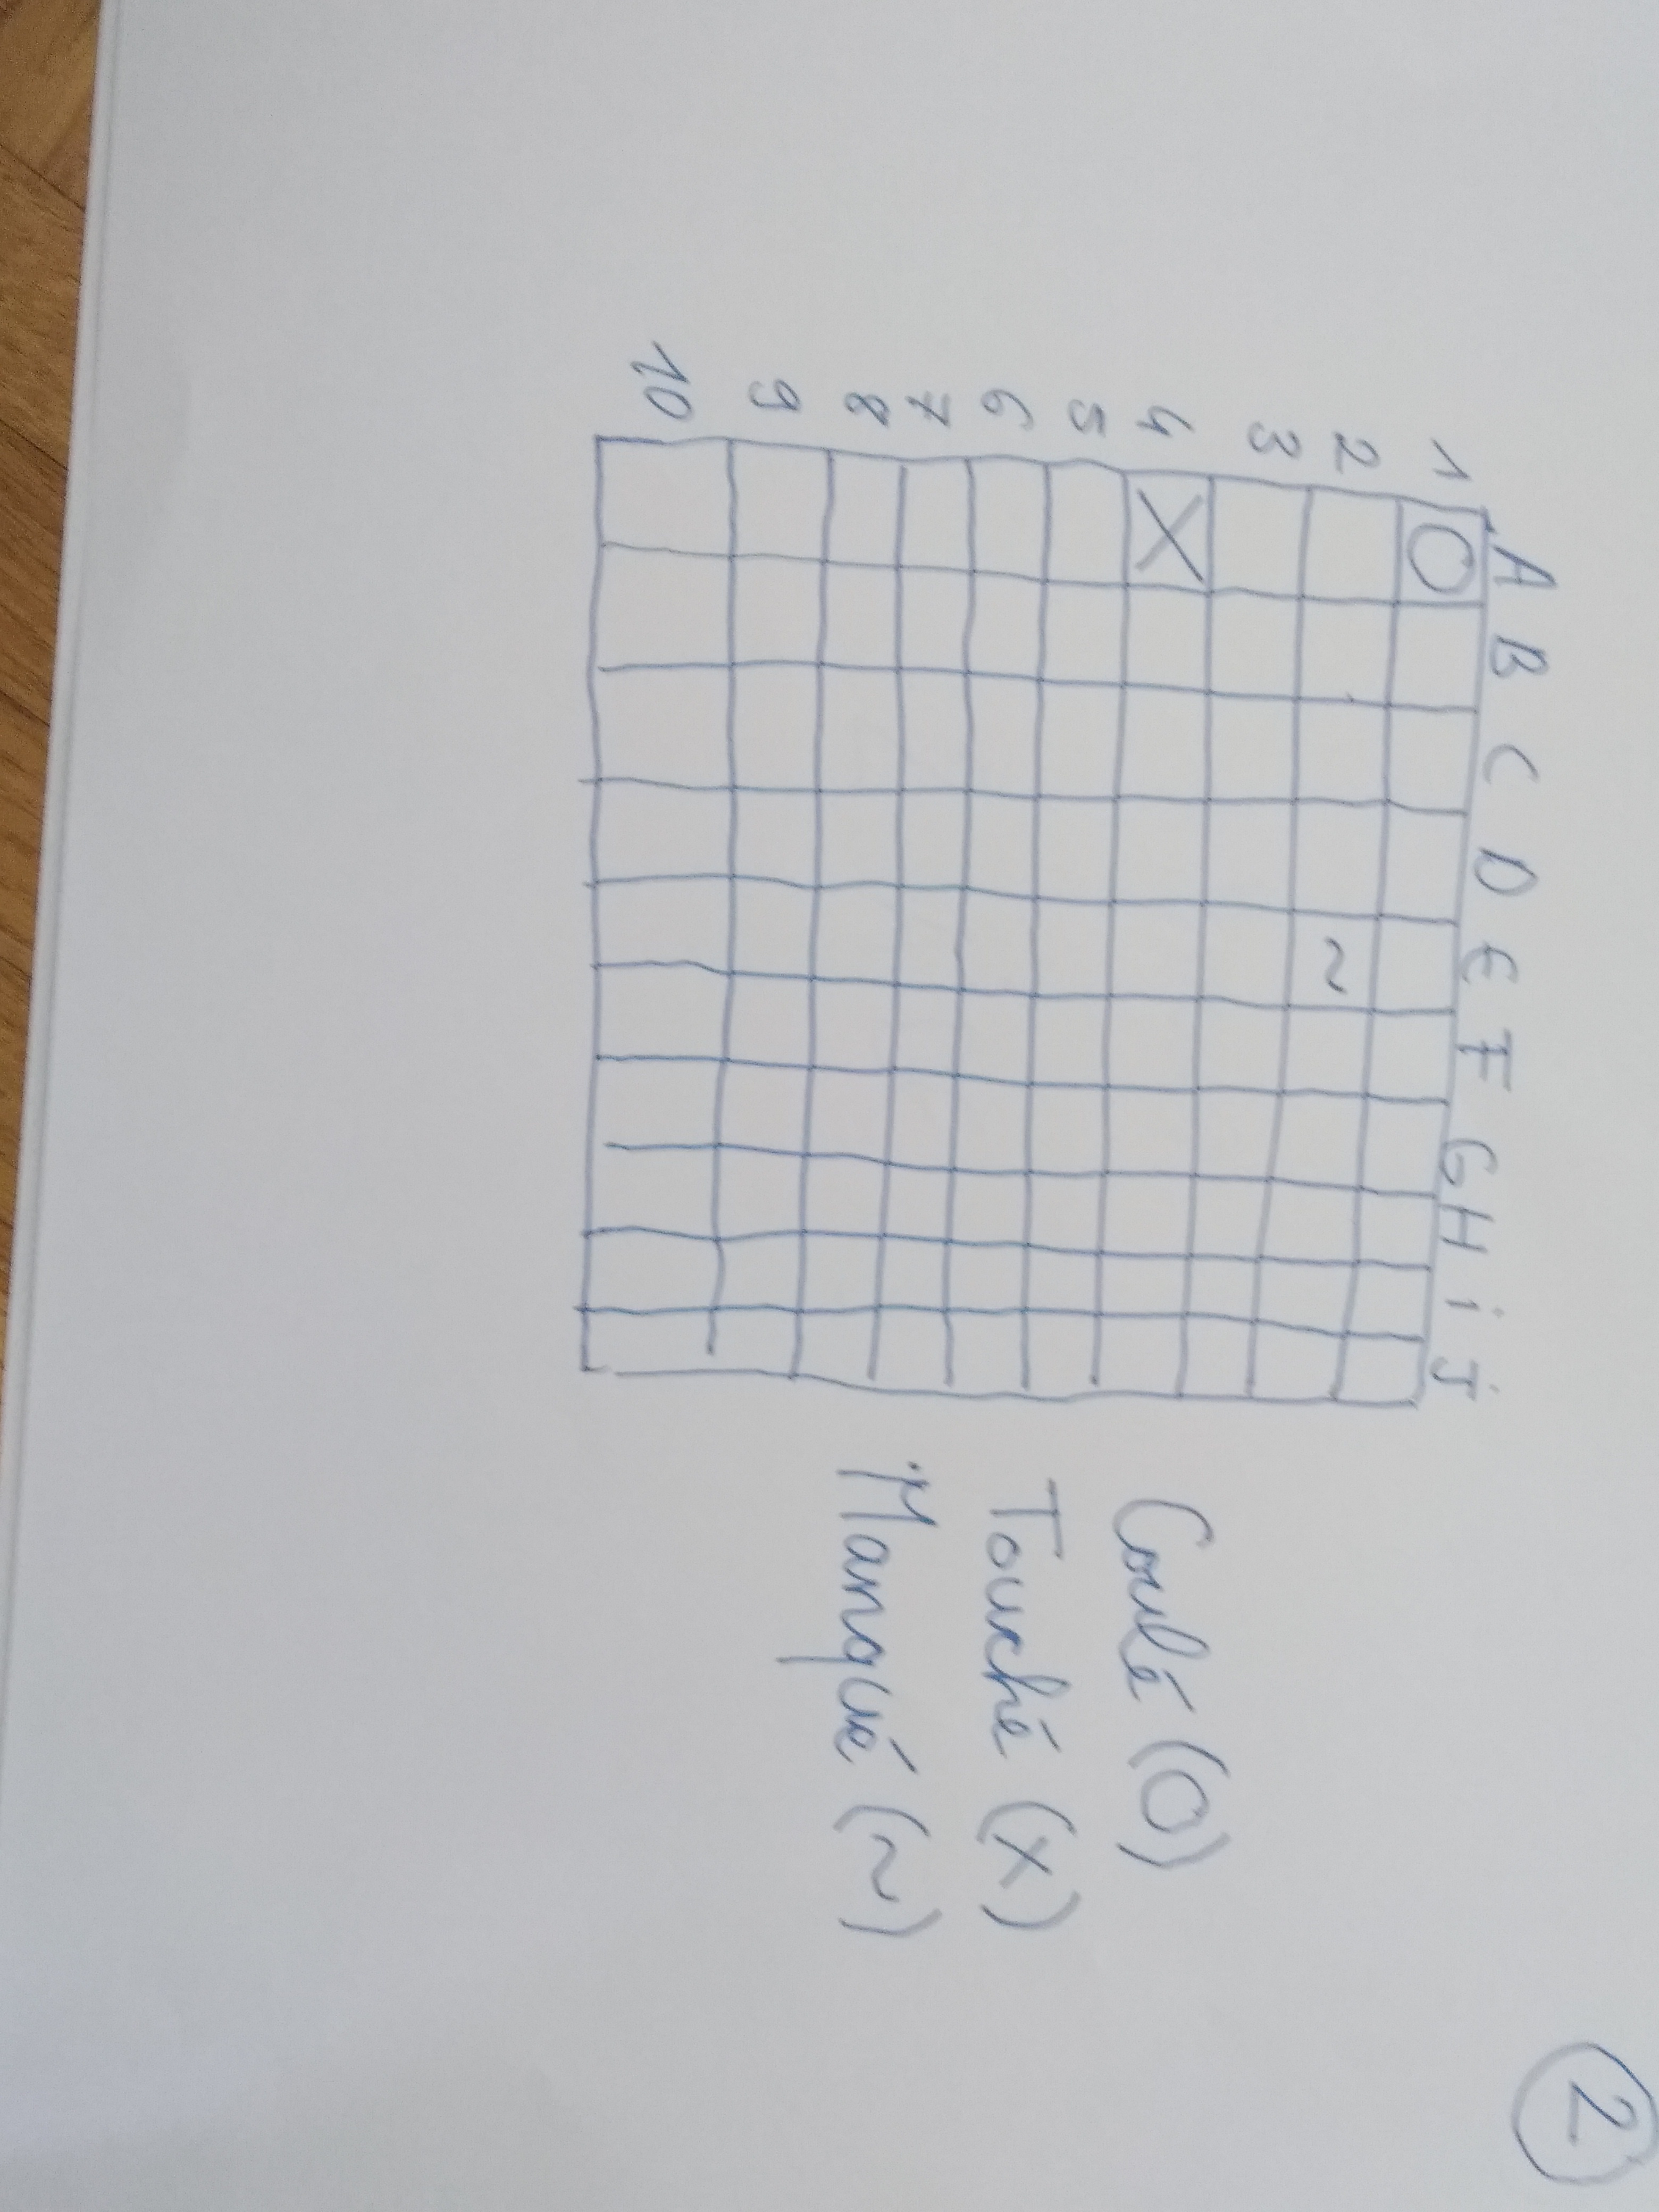 2
A B C D E F G H i J
1 O
2 ~
3
4 X
5
6
7
8
9
10
Coulé (O)
Touché (X)
Manqué (~)